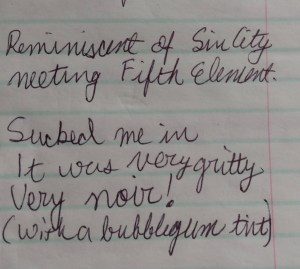 Reminiscent of Sin City
meeting Fifth Element.
Sucked me in
It was very gritty
Very noir!
(with a bubblegum tint)